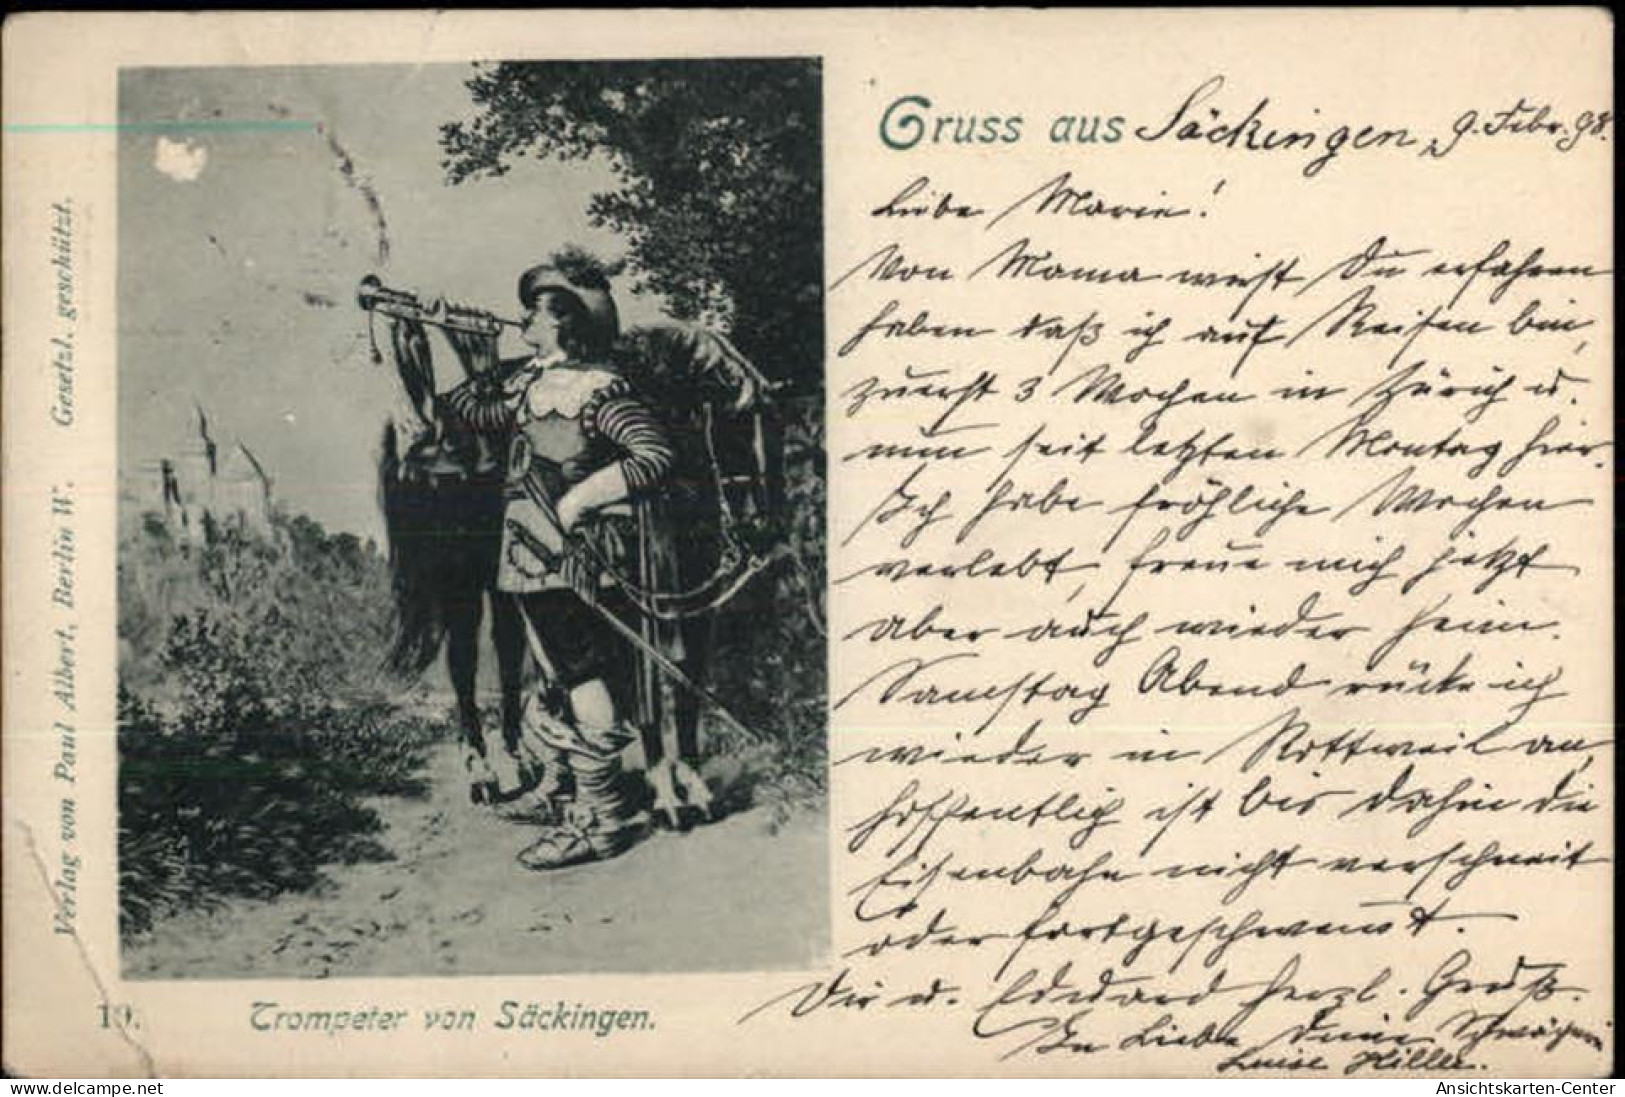 Gruss aus Säckingen, 9. Febr. 98.
Liebe Marie!
Von Mama wirst Du erfahren
haben daß ich auf Reisen bin,
zuerst 3 Wochen in Zürich u.
nun seit letzten Montag hier.
Ich habe fröhliche Wochen
verlebt, freue mich jetzt
aber auch wieder heim.
Samstag Abend rücke ich
wieder in Rottweil an,
hoffentlich ist bis dahin die
Eisenbahn nicht verschneit
oder fortgeschwemmt.
Dir u. Eduard herzl. Gruß.
In Liebe Deine Schwägerin
Luise Hiller.
Verlag von Paul Albert, Berlin W. Gesetzl. geschützt.
19. Trompeter von Säckingen.
Ansichtskarten-Center